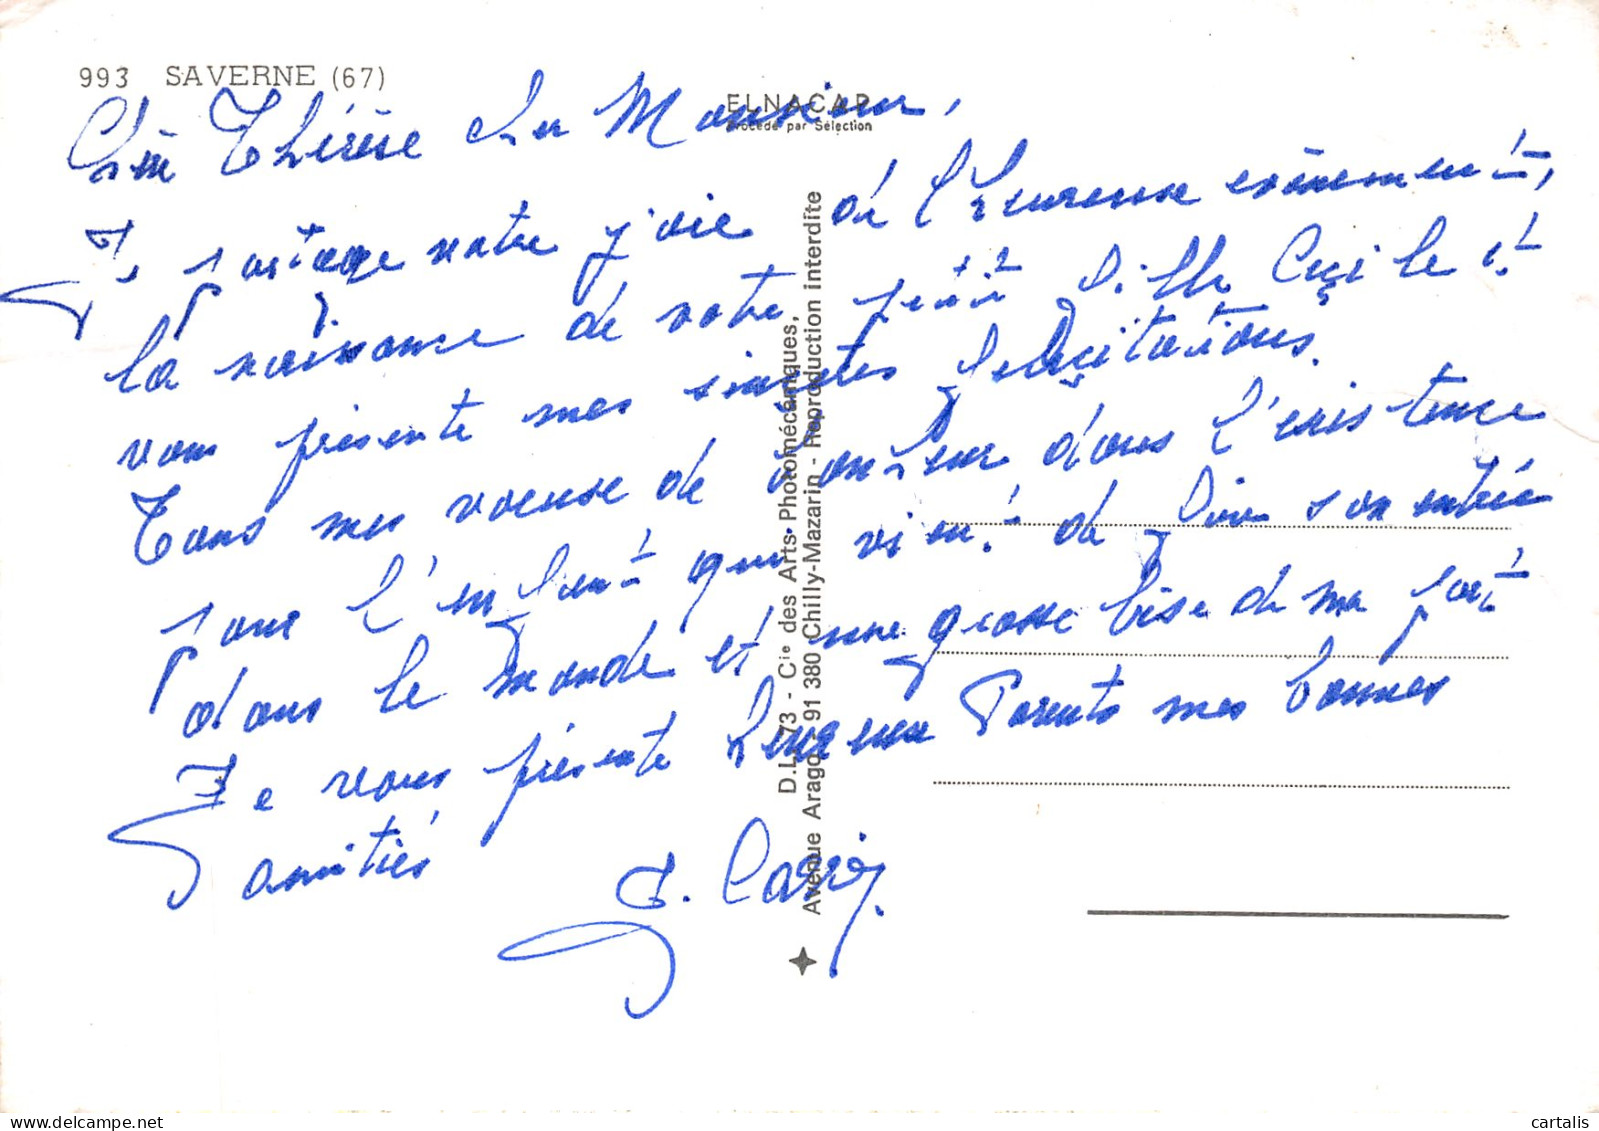 993 SAVERNE (67)
ELNACAP
Procédé par Sélection
Chère Thérèse Cher Monsieur,
Je partage votre joie de l'heureuse événement,
la naissance de votre petite fille Cécile et
vous présente mes sincères félicitations.
Tous mes voeuse de bonheur dans l'existence
pour l'enfant qui vient de faire son entrée
dans le monde et une grosse bise de ma part
Je vous présente heureux Parents mes bonnes
amitiés
J. Carry.
D.L. 73 - Cie des Arts Photomécaniques,
Avenue Arago - 91 380 Chilly-Mazarin - Reproduction interdite
cartalis